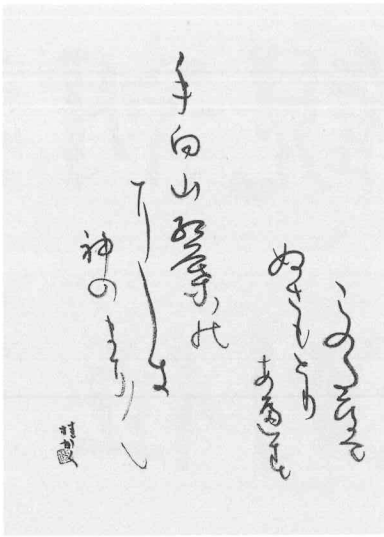 このたびは
ぬさもとり
あへず
手向山紅葉の
にしき
神のまに〱